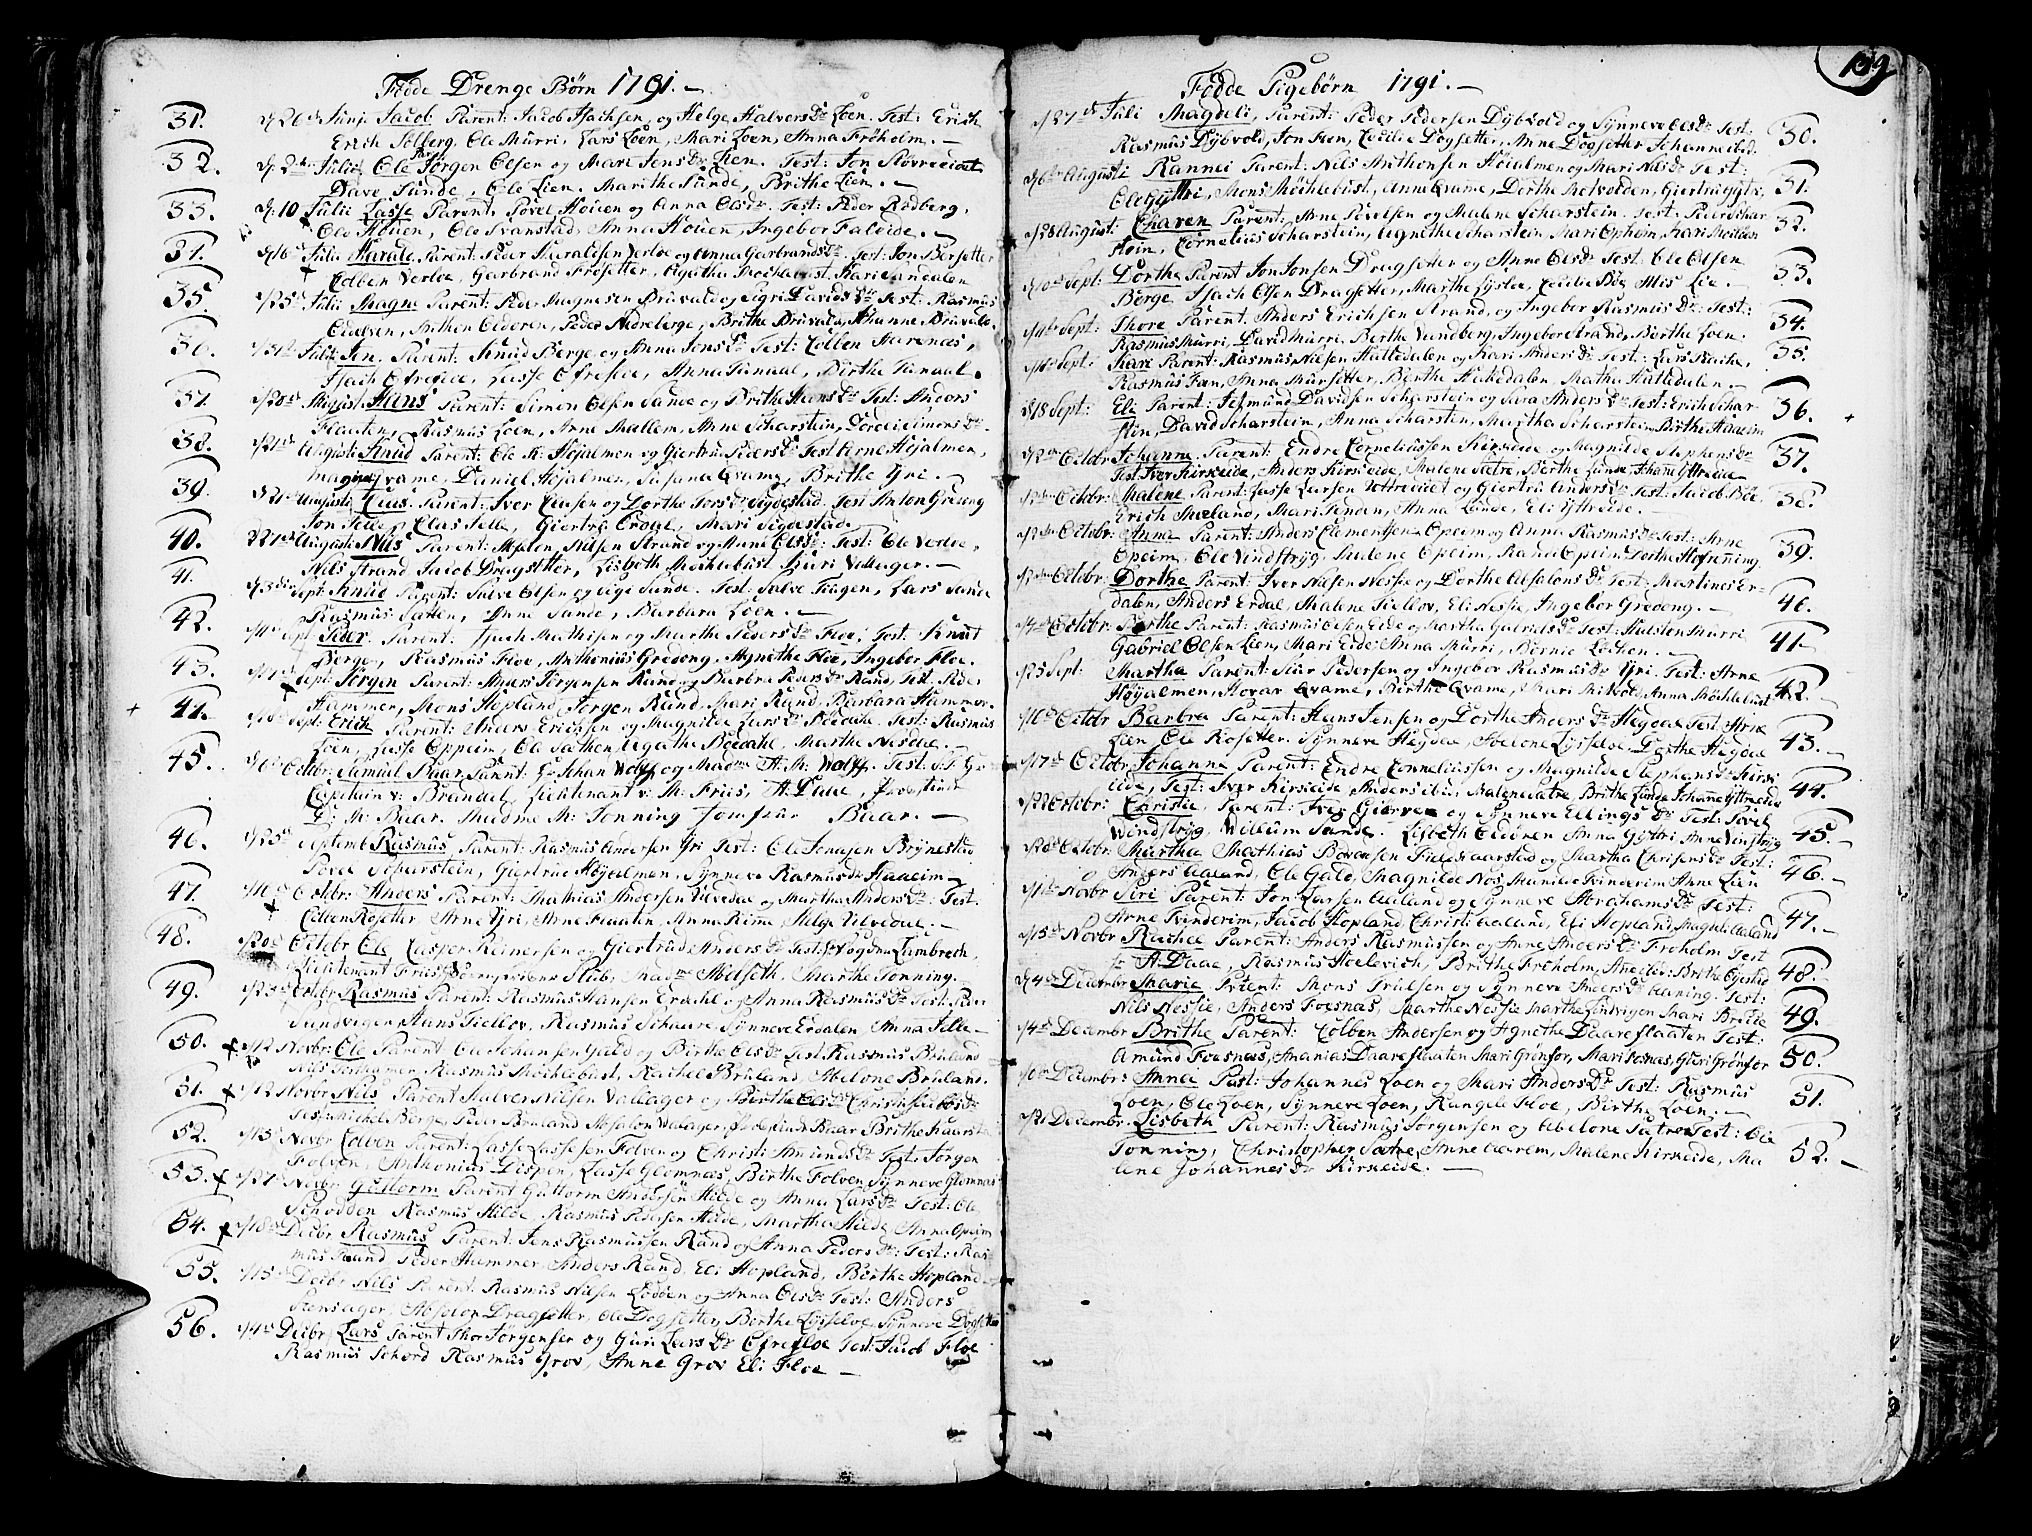 Födde Drenge Börn 1791. —
31. d/26de Junji Jacob Parent: Jacob Isachsen, og Helge Halversdr Loen. Test: Erich
Erich Solberg, Ole Murri, Lars Loen, Mari Loen, Anna Fröholm. —
32. d/2den Julii Ole Parent Jörgen Olsen og Mari Jensdr Lien. Test: Jon
Dave Sunde, Ole Lien. Marithe Sunde, Brithe Lien. —
33. d/10 Julii Lasse Parent: Povel Houen og Anna Olsdr. Test: Peder Rödberg,
Ole Houen, Ole Svanstad, Anna Houen, Ingebor Faleide. —
34. d/16de Julii Harald Parent: Peder Haraldsen Verlve og Anna Garbrandsdr. Test: Jon Bersetter
Colben Verlve, Garbrand Frösetter, Agatha Möchlebust, Kari
35. d/25de Julii Magne Parent: Peder Magnesen Bruvald og Sigri Davidsdr Test: Rasmus
Anthon Olderen, Peder Nedreberge, Brithe Bruvald, Johanne Bruvald.
36. d/31te Julii Jon Parent: Knud Berge og Anna Jonsdr Test: Colben
Isach Ofreeide, Lasse Ofreeide, Anna Tunaal, Birthe Tunaal.
37. d/20de August: Hans Parent: Simon Olsen Sande og Brithe Hansdr Test: Anders
Flaaten, Rasmus Loen, Arne Mallem, Anne Scharstein, Dordei Simensdr.
38. d/21de Augusti Knud Parent: Ole K: Höjalmen og Giertru Pedersdr Test Arne Höjalmen,
Magne Qvame, Daniel Höjalmen, Susana Qvame, Brithe Yri.
39. d/21de Augusti Claus Parent: Iver Clausen og Dorthe Torsdr Segdestad, Test Anton Gredung
Jon Felle, Clas Felle, Giertru Croul, Mari Segdestad.
40. d/21de August: Nils Parent: Absolon Nilsen Strand og Anne Olsdr: Test: Ole Verlve,
Nils Strand Jacob Dragsetter, Lisbeth Möchlebust Guri Vallager. —
41. d/3die Sept: Knud Parent: Salve Olsen og Sigri Sunde. Test: Salve Tungen, Lars Sunde
Rasmus Satten, Anne Sunde, Barbara Loen. —
42. d/4de Sept Peder Parent: Isach Mathisen og Marthe Pedersdr Floe, Test: Knut
Berge, Rasmus Floe, Anthonius Gredung, Agnethe Floe, Ingebor Floe.
43. d/4de Sept: Jörgen Parent: Anders Jörgensen Rand og Barbra Pedersdr Rand, Test: Peder
Hammer, Mons Hopland, Jörgen Rand, Mari Rand, Barbara Hammer.
44. d/18de Sept: Erich Parent: Anders Erichsen og Magnilde Larsdr Bödahl. Test: Rasmus
Loen, Lasse Oppeim, Ole Sathen, Agathe Boedahl, Marthe Nesdal.
45. d/6te Octobr: Samuel Baar, Parent: Hr Johan Wolff og Madme A: M: Wolff. Test: S: F:
Capitain v: Brandal, Lieutenant v: M: Friis, A: Daae, Provstinde
D: M: Baar, Madme M: Tonning Jomfru Baar. —
46. d/25de Septemb Rasmus, Parent: Rasmus Andersen Yri Test: Ole Jonasen Brynestad
Povel Scharstein, Giertrue Höjalmen, Synneve Rasmusdr Haaeim —
47. d/16de Octobr: Anders Parent: Mathias Andersen Ulvedal og Martha Andersdr: Test:
Colben Rosetter Arne Yri, Arne Flaaten, Anna Reime, Helge Ulvedal. —
48. d/20de Octobr Ole Casper Reinersen og Giertrud Andersdr Test: Sr Vogdme Lambrech,
Lieutenant Friis Stub, Madme Abelseth, Marthe Tonning. —
49. d/23de Octobr Rasmus Parent: Rasmus Hansen Erdahl og Anna Rasmusdr Test: Peder
Sandvigen, Hans Fiellov, Rasmus Schaare, Synneve Erdalen Anna Felle —
50. d/12 Novbr: Ole Parent Ole Johansen Guld og Birthe Olsdr Test Rasmus Bruland
Nils Tenhamer, Rasmus Möchlebust, Rachel Bruland, Abelone Bruland.
51. d/12 Novbr Nils Parent Halver Nilsen Vallager og Berthe Olsdr Christi Jacobsdr
Test: Michel Berge, Peder Bruland Absalon Vallager, Provstinde Baar Brithe Kaarstad
52. d/13de Novbr Colben Parent: Lasse Lassesen Folven og Christi Amundsdr Test: Jörgen
Folven, Anthonius Dispen, Lasse Glomnæs, Birthe Folven Synneve Glomnæs
53. d/27de Novbr Guttorm Parent Guttorm Andersen Hilde og Anna Larsdr Test: Ole
Schodden, Rasmus Hilde, Rasmus Pedersen Hilde, Martha Hilde Anna Opeim
54. d/18de Decbr Rasmus Parent: Jens Rasmussen Rand og Anna Pedersdr: Test: Ras
mus Rand Peder Hammer, Anders Rand, Eli Hopland, Birthe Hopland —
55. d/15de Decbr Nils Parent: Rasmus Nilsen Lödöen og Anna Olsdr Test: Anders
Stensager, Absolon Dragsetter, Ole Dogsetter, Berthe Lysselve, Synneve Dogsetter
56. d/4de Decbr Lars Parent Thor Jörgensen og Guri Larsdr Ofrefloe Test: Jacob Floe
Rasmus Schord Rasmus Grov, Anne Grov Eli Floe —
139
Födde Pigebörn 1791. —
d/27de Juli Magdeli, Parent: Peder Pedersen Dybvold og Synneve Olsdr Test: 30.
Rasmus Dybvold, Jon Steen, Cecilie Dogsetter, Anne Dogsetter Johanne ibid.
d/6te Augusti Rannei Parent: Nils Anthonsen Höialmen og Mari Nilsdr Test: 31.
Ole Gyttri, Mons Möchlebust, Anne Qvame, Dorthe Melvolden, Giertru Gytri,
d/28 August: Charen Parent: Arne Povelsen og Malene Scharstein. Test: Peder Schar 32.
stein, Cornelius Scharstein, Agnethe Scharstein, Mari Opheim, Kari
d/10de Sept: Dorthe Parent Jon Jonsen Dragsetter og Anne Olsdr Test: Ole Olsen 33.
Berge Isach Olsen Dragsetter, Marthe Lyslie, Cecilie Böe Mis Lie. —
d/11te Sept: Thore Parent. Anders Erichsen Strand, og Ingebor Rasmusdr: Test: 34.
Rasmus Murri, David Murri, Berthe Vandberg, Ingebor Strand, Birthe Loen.
d/18de Sept: Kari Parent: Rasmus Nilsen Hattedalen og Kari Andersdr Test: Lars Rache, 35.
Rasmus Fæn, Anna Mursetter, Berthe Hattedalen, Martha Hattedalen. —
d/18 Sept: Eli Parent: Jesmund Davidsen Scharstein og Sara Andersdr Test: Erich Schar- 36.
stein, David Scharstein, Anna Scharstein, Martha Scharstein Birthe Haaeim
d/2den Octobr Johanna Parent: Endre Corneliussen Kirkeide og Magnilde Stephensdr 37.
Test: Iver Kirkeide, Anders Kirkeide, Malene Sætre, Berthe Lunde, Johane Yttreeide
d/2den Octobr: Malene Parent: Lasse Larsen Yttreeidet og Giertru Andersdr Test: Jacob Böe, 38.
Erich Mæland, Mari Tenden, Anna Lunde, Eli Yttreide. —
d/2den Octobr: Anna Parent: Anders Clementsen Opeim og Anna Rasmusdr Test: Arne 39.
Opeim, Ole Vindstryg, Malene Opeim, Randi Opeim Dorthe
d/2den Octobr: Dorthe Parent: Iver Nilsen Nessie og Dorthe Absolonsdr Test: Martinus Er- 40.
dalen, Anders Erdal, Malene Fiellov, Eli Nessie, Ingebor Gredung. —
d/4de Octobr: Berthe Parent: Rasmus Olsen Eide og Martha Gabrielsdr Test: Halsten Murri, 41.
Gabriel Olsen Lien, Mari Eide Anna Murri, Bernie Lochen. —
d/25 Sept: Martha Parent: Siur Pedersen og Ingebor Rasmusdr Yri. Test: Arne 42.
Höyalmen, Hovar Qvame, Birthe Qvame, Mari Anna Möchlebust
d/16de Octobr Barbra Parent: Hans Jensen og Dorthe Andersdr Hegdal Test: Arne 43. —
Lien Ole Rosetter. Synneve Heydal, Abelone Lysselve Dorthe Heydal
d/17de Octobr Johanne Parent: Endre Corneliussen og Magnilde Stephansdr Kirk 44. —
eide, Test: Iver Kirkeide, Anders ibid, Malene Sætre, Brithe Lunde Johanne Yttreeide
d/22 Octobr: Christie, Parent: Iver Gierven og Synneve Ellingsdr Test: Povel 45. —
Windstryg, Willum Sande. Lisbeth Olderen Anna Gythri, Anne Vinstryg
d/28de Octobr: Martha Mathias Bodvesen Field Kaarstad og Martha Chrisensdr Test: 46. —
Anders Aaland, Ole Gald, Magnilde Nos Munilde Tvinderim Anne Lien
d/1te Novbr Siri Parent: Jon Larsen Aaland og Synneve Abrahamsdr Test: 47. —
Arne Tvinderim, Jacob Hopland, Christi Aaland, Eli Hopland, Magnili Aaland
d/15de Novbr Rachel Parent: Anders Rasmussen og Anne Andersdr Froholm Test 48. —
Sr A: Daae, Rasmus Hoelevich, Brithe Fröholm,
d/4de Decembr Marie Parent: Mons Truelsen og Synneve Andersdr Test: 49.
Nils Nessie, Anders Foesnæs, Marthe Nessie Marthe Sandvigen Mari Brække
d/4de Decembr Brithe Parent: Colben Andersen og Agnethe Daareflaaten Test: 50.
Amund Foesnæs, Ananias Daareflaaten Mari Grönfor, Mari Fosnæs, Guri Grönfor
d/10de Decembr: Annei Test: Johannes Loen og Mari Andersdr Test: Rasmus 51.
Loen, Ole Loen, Synneve Loen, Rangele Floe, Birthe Loen. —
d/21 Decembr. Lisbeth Parent: Rasmus Jörgensen og Abelone Sætre Test: Ole 52. —
Tonning, Christopher Sætre, Anne Aarem, Malene Kirkeide, Ma
lene Johannesdr Kirkeide. —